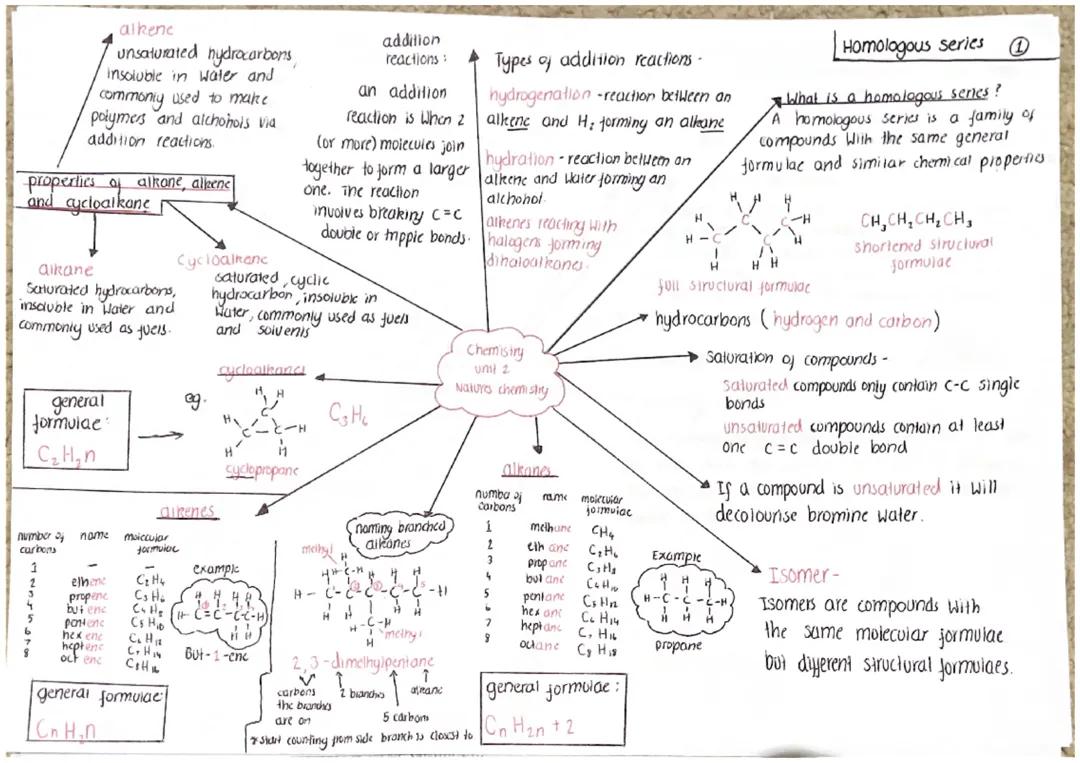 Homologous series ①
alkene
unsaturated hydrocarbons,
insoluble in water and
commonly used to make
polymers and alchohols via
addition reactions.
properties of alkane, alkene
and cycloalkane
alkane
saturated hydrocarbons,
insoluble in water and
commonly used as fuels.
cycloalkane
saturated, cyclic
hydrocarbon, insoluble in
water, commonly used as fuels
and solvents
addition
reactions:
an addition
reaction is when 2
(or more) molecules join
together to form a larger
one. The reaction
involves breaking C=C
double or tripple bonds.
Types of addition reactions -
hydrogenation - reaction between an
alkene and H₂ forming an alkane
hydration - reaction between an
alkene and water forming an
alchohol.
alkenes reacting with
halogens forming
dihaloalkanes.
What is a homologous series?
A homologous series is a family of
compounds with the same general
formulae and similar chemical properties
CH₃CH₂CH₂CH₃
shortened structural
formulae
full structural formulae
hydrocarbons (hydrogen and carbon)
Saturation of compounds -
saturated compounds only contain C-C single
bonds
unsaturated compounds contain at least
one C=C double bond
If a compound is unsaturated it will
decolourise bromine water.
Isomer -
Isomers are compounds with
the same molecular formulae
but different structural formulaes.
Chemistry
unit 2
Natures chemistry
cycloalkanes
general
formulae:
C₂H₂n
eg.
C₃H₆
cyclopropane
alkenes
number of carbons name molecular formulae
1 - -
2 ethene C₂H₄
3 propene C₃H₆
4 butene C₄H₈
5 pentene C₅H₁₀
6 hexene C₆H₁₂
7 heptene C₇H₁₄
8 octene C₈H₁₆
example
But-1-ene
general formulae:
CnH₂n
naming branched
alkanes
methyl
methyl
2,3-dimethylpentane
carbons
the branches
are on
2 branches
5 carbons
alkane
* start counting from side branch is closest to
alkanes
number of carbons name molecular formulae
1 methane CH₄
2 ethane C₂H₆
3 propane C₃H₈
4 butane C₄H₁₀
5 pentane C₅H₁₂
6 hexane C₆H₁₄
7 heptane C₇H₁₆
8 octane C₈H₁₈
Example
propane
general formulae:
CnH₂n+2